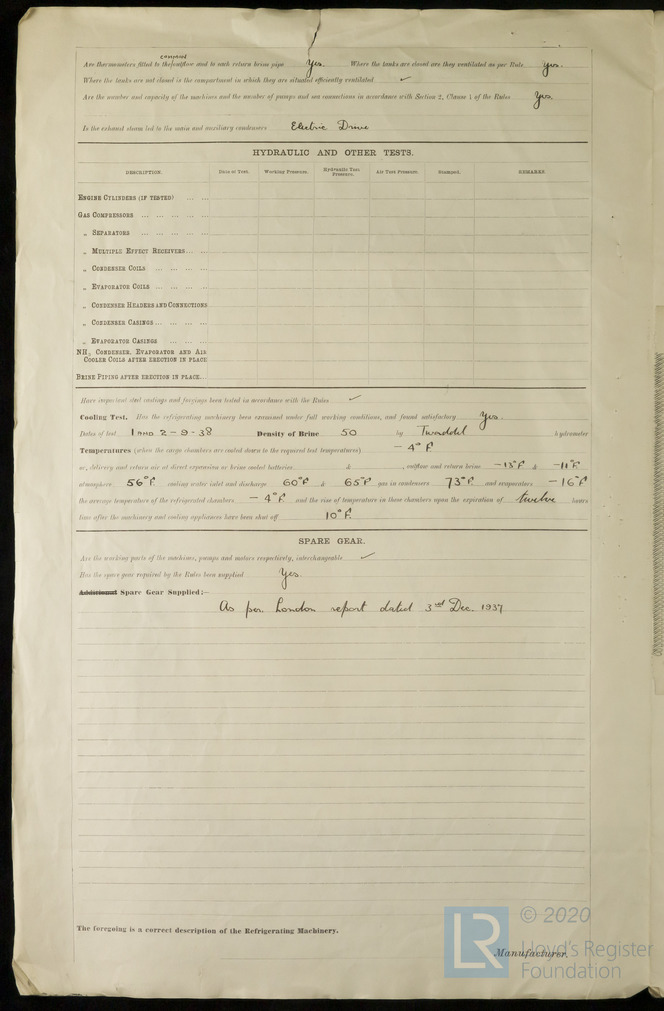 compound
Are thermometers fitted to the outflow and to each return brine pipe Yes. Where the tanks are closed are they ventilated as per Rule Yes.
Where the tanks are not closed is the compartment in which they are situated efficiently ventilated ✓
Are the number and capacity of the machines and the number of pumps and sea connections in accordance with Section 2, Clause 1 of the Rules Yes.
Is the exhaust steam led to the main and auxiliary condensers Electric Drive
HYDRAULIC AND OTHER TESTS.
DESCRIPTION. DATE OF TEST. WORKING PRESSURE. HYDRAULIC TEST PRESSURE. AIR TEST PRESSURE. STAMPED. REMARKS.
ENGINE CYLINDERS (IF TESTED) ... ...
GAS COMPRESSORS ... ... ... ...
„ SEPARATORS ... ... ... ...
„ MULTIPLE EFFECT RECEIVERS... ...
„ CONDENSER COILS ... ... ...
„ EVAPORATOR COILS ... ... ...
„ CONDENSER HEADERS AND CONNECTIONS
„ CONDENSER CASINGS... ... ...
„ EVAPORATOR CASINGS ... ... ...
NH3 CONDENSER, EVAPORATOR AND AIR
COOLER COILS AFTER ERECTION IN PLACE
BRINE PIPING AFTER ERECTION IN PLACE...
Have important steel castings and forgings been tested in accordance with the Rules ✓
Cooling Test. Has the refrigerating machinery been examined under full working conditions, and found satisfactory Yes.
Dates of test 1 AND 2-9-38 Density of Brine 50 by Twaddel hydrometer
Temperatures (when the cargo chambers are cooled down to the required test temperatures) -4°F
or, delivery and return air at direct expansion or brine cooled batteries & , outflow and return brine -13°F & -11°F
atmosphere 56°F cooling water inlet and discharge 60°F & 65°F gas in condensers 73°F and evaporators -16°F
the average temperature of the refrigerated chambers -4°F and the rise of temperature in these chambers upon the expiration of twelve hours
time after the machinery and cooling appliances have been shut off 10°F.
SPARE GEAR.
Are the working parts of the machines, pumps and motors respectively, interchangeable ✓
Has the spare gear required by the Rules been supplied Yes.
Additional Spare Gear Supplied:—
As per London report dated 3rd Dec. 1937
The foregoing is a correct description of the Refrigerating Machinery.
Manufacturer.
LR © 2020
Lloyd's Register
Foundation